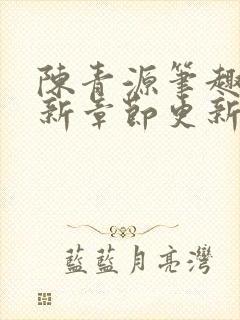 陳青源筆趣
新章節更新
藍藍月亮灣